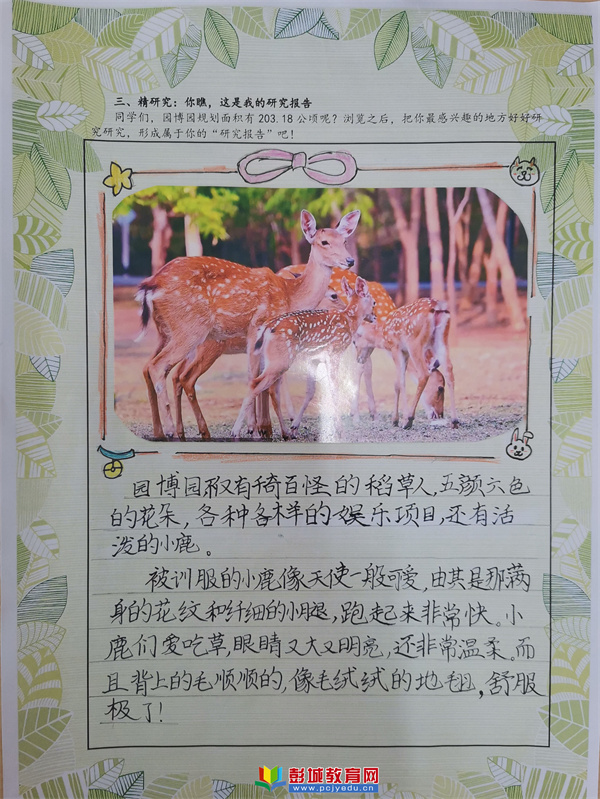 三、精研究：你瞧，这是我的研究报告
同学们，园博园规划面积有 203.18 公顷呢？浏览之后，把你最感兴趣的地方好好研
究研究，形成属于你的“研究报告”吧！
园博园不仅有千奇百怪的稻草人，五颜六色
的花朵，各种各样的娱乐项目，还有活
泼的小鹿。
被训服的小鹿像天使一般可爱，由其是那满
身的花纹和纤细的小腿，跑起来非常快。小
鹿们爱吃草，眼睛又大又明亮，还非常温柔。而
且背上的毛顺顺的，像毛绒绒的地毯，舒服
极了！
彭城教育网
www.pcjyedu.cn